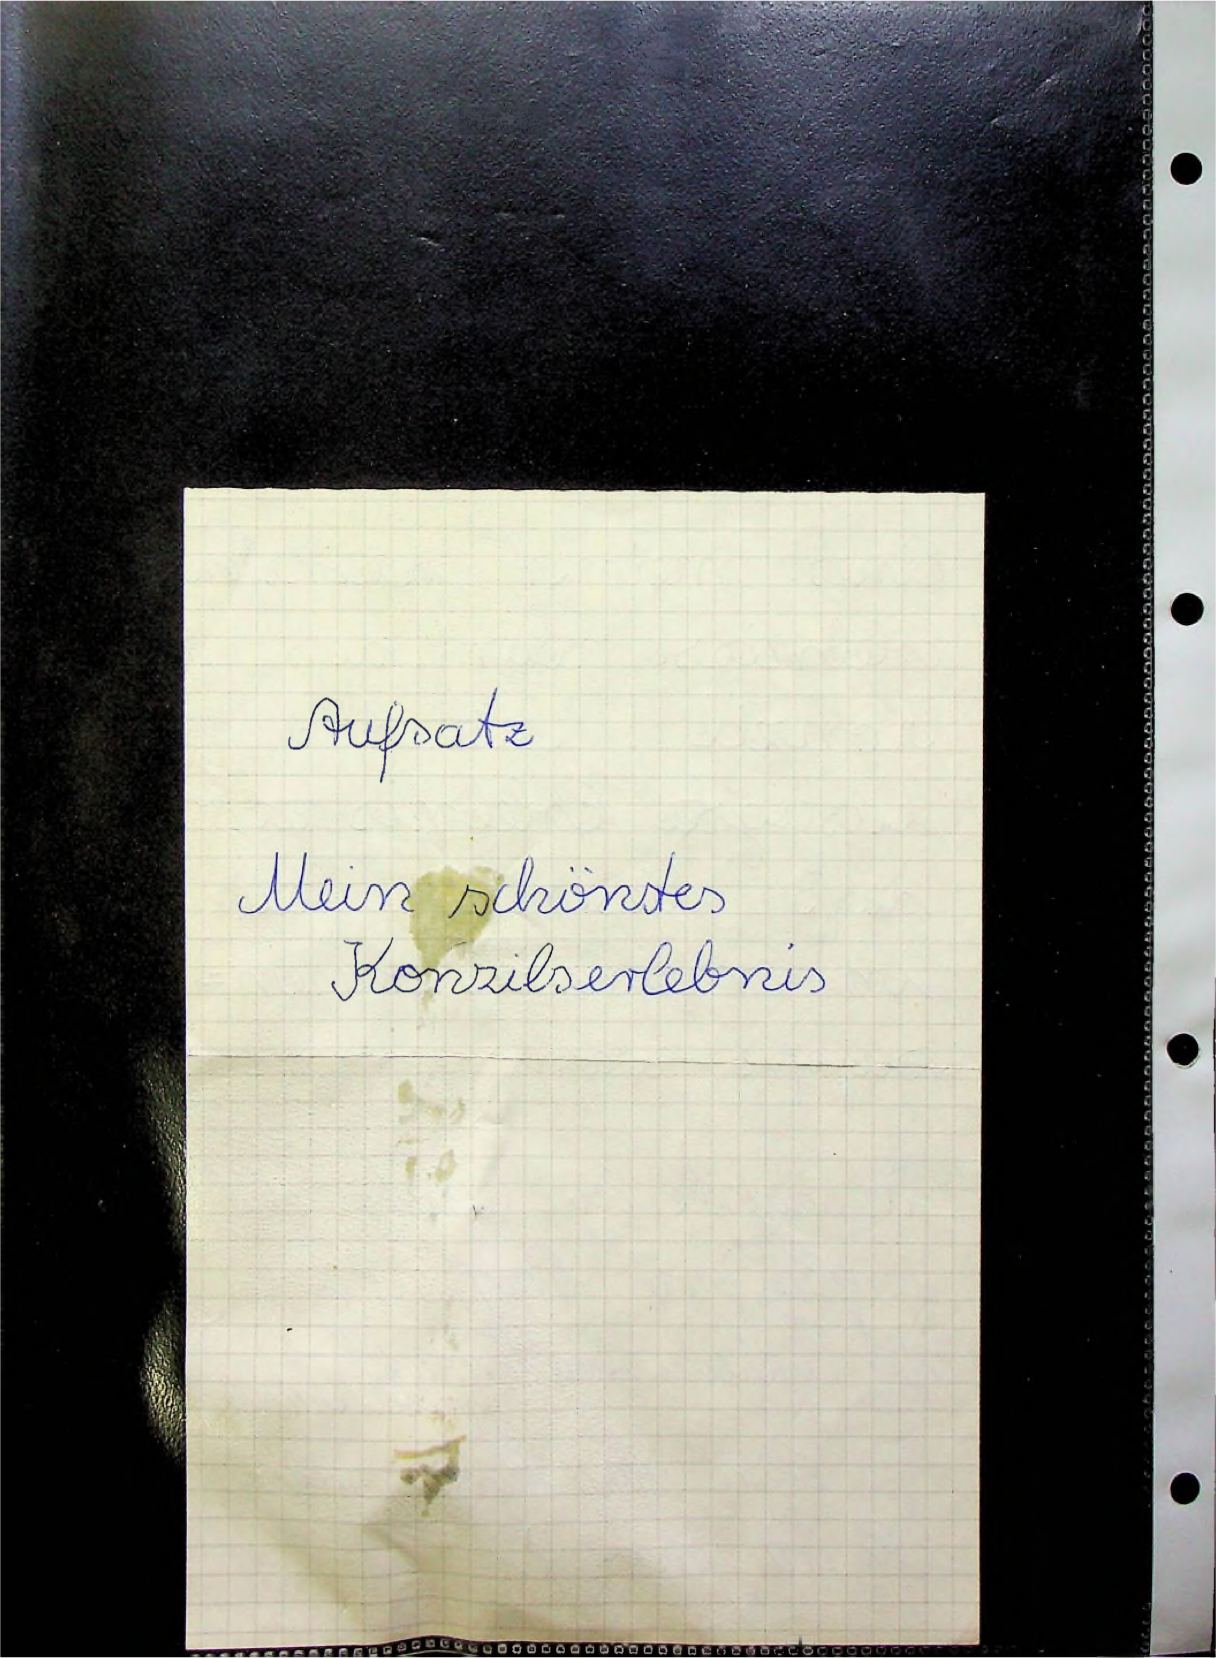 Aufsatz
Mein schönstes
Konzilserlebnis